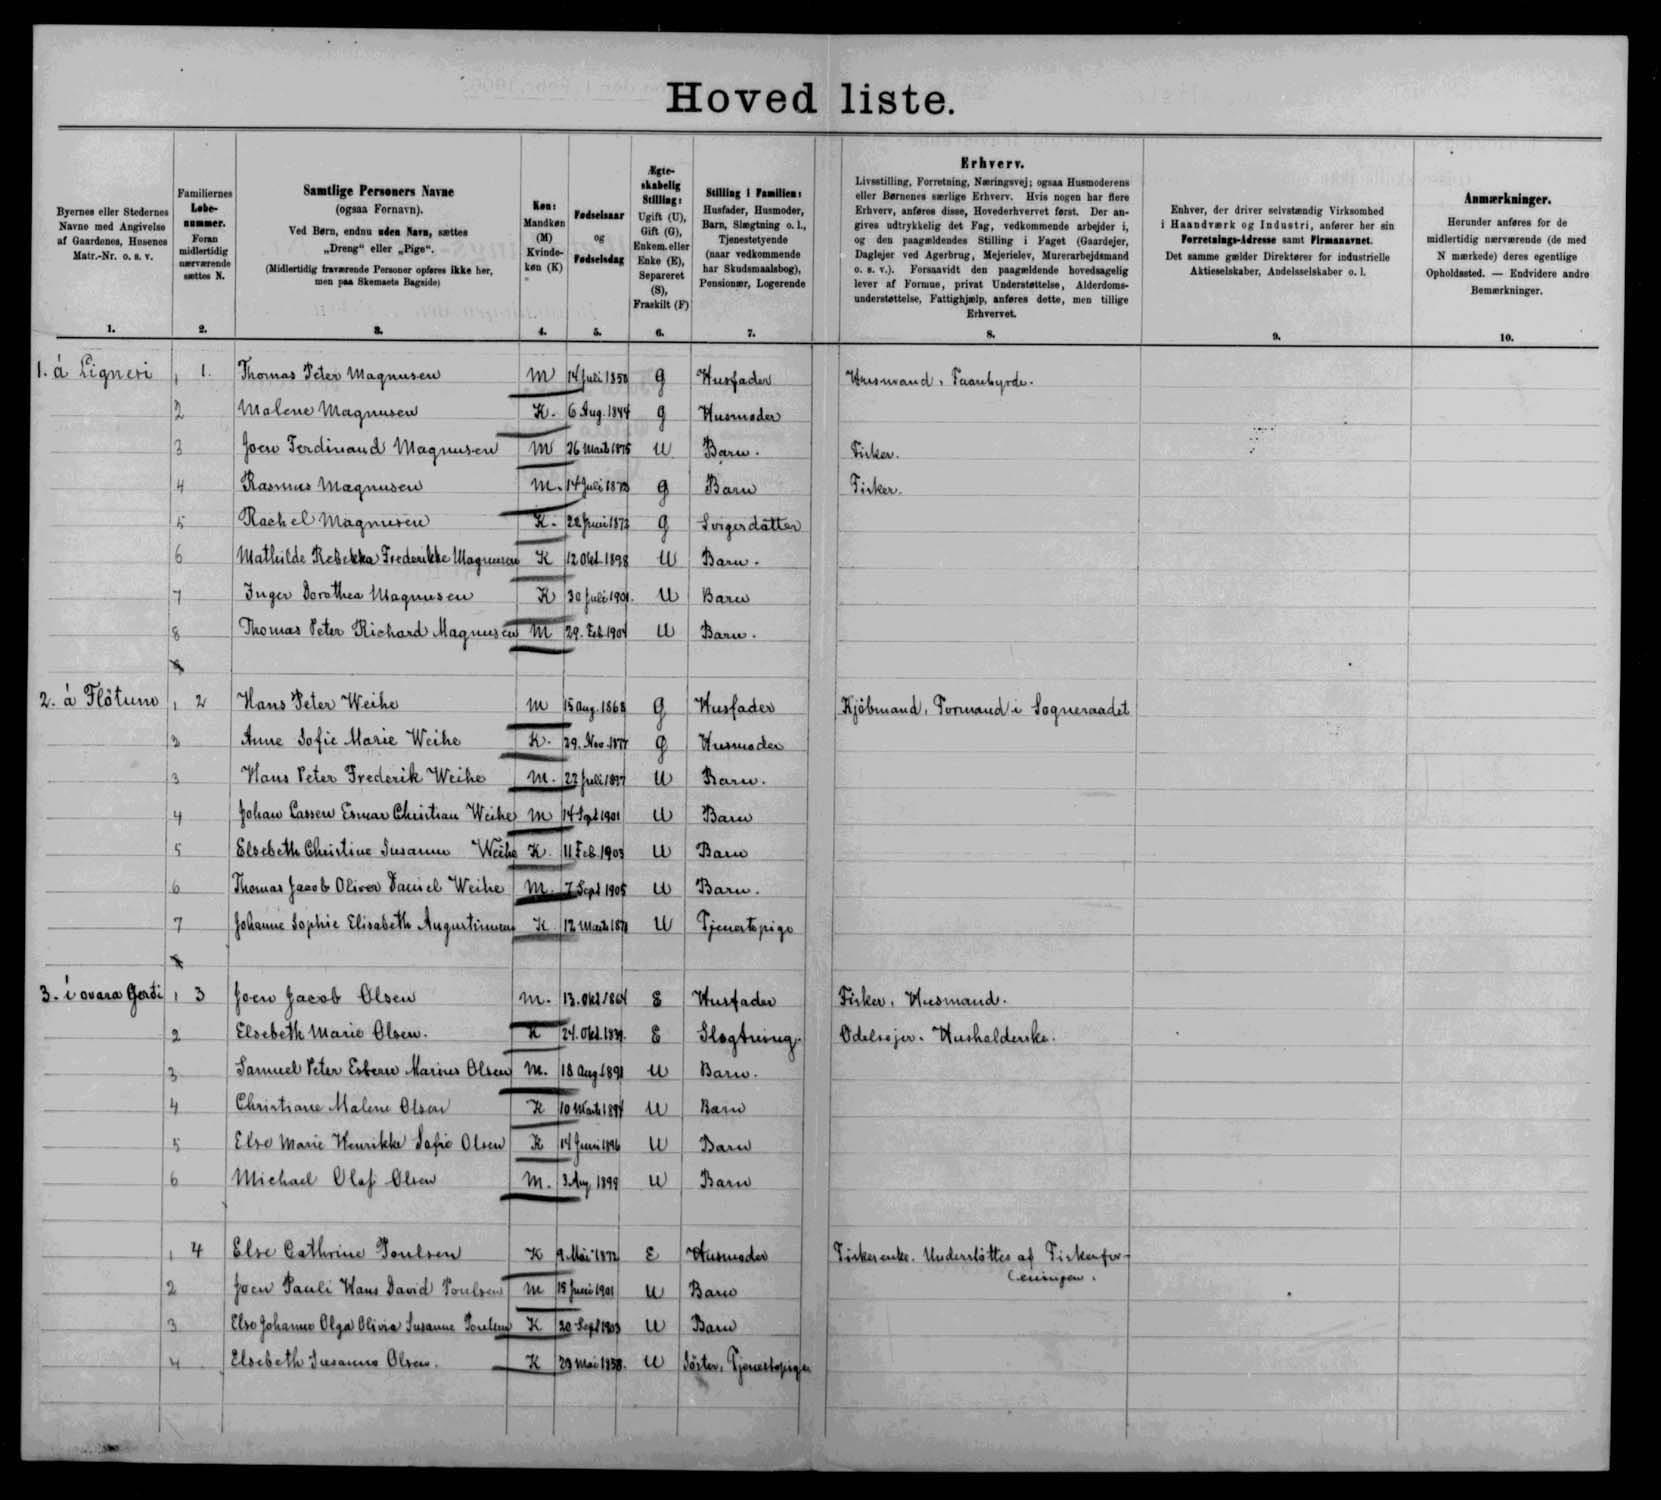 Hovedliste.
Byernes eller Stedernes
Navne med Angivelse
af Gaardenes, Husenes
Matr.-Nr. o. s. v.
1.
Familiernes
Løbe-
nummer.
Foran
midlertidig
nærværende
sættes N.
2.
Samtlige Personers Navne
(ogsaa Fornavn).
Ved Børn, endnu uden Navn, sættes
„Dreng“ eller „Pige“.
(Midlertidig fraværende Personer opføres ikke her,
men paa Skemaets Bagside)
3.
Køn:
Mandkøn
(M)
Kvinde-
køn (K)
4.
Fødselsaar
og
Fødselsdag
5.
Ægte-
skabelig
Stilling:
Ugift (U),
Gift (G),
Enkem. eller
Enke (E),
Separeret
(S),
Fraskilt (F)
6.
Stilling i Familien:
Husfader, Husmoder,
Barn, Slægtning o. l.,
Tjenestetyende
(naar vedkommende
har Skudsmaalsbog),
Pensionær, Logerende
7.
Erhverv.
Livsstilling, Forretning, Næringsvej; ogsaa Husmoderens
eller Børnenes særlige Erhverv. Hvis nogen har flere
Erhverv, anføres disse, Hovederhvervet først. Der an-
gives udtrykkelig det Fag, vedkommende arbejder i,
og den paagældendes Stilling i Faget (Gaardejer,
Daglejer ved Agerbrug, Mejerielev, Murerarbejdsmand
o. s. v.). Forsaavidt den paagældende hovedsagelig
lever af Formue, privat Understøttelse, Alderdoms-
understøttelse, Fattighjælp, anføres dette, men tillige
Erhvervet.
8.
Enhver, der driver selvstændig Virksomhed
i Haandværk og Industri, anfører her sin
Forretnings-Adresse samt Firmanavnet.
Det samme gælder Direktører for industrielle
Aktieselskaber, Andelsselskaber o. l.
9.
Anmærkninger.
Herunder anføres for de
midlertidig nærværende (de med
N mærkede) deres egentlige
Opholdssted. — Endvidere andre
Bemærkninger.
10.
1. á Ligneri 1 1. Thomas Peter Magnusen M 14 Juli 1850 G Husfader Husmand,
2 Malene Magnusen K. 6 Aug. 1844 G Husmoder
3 Joen Ferdinand Magnusen M 26 Marts 1875 U Barn. Fisker.
4 Rasmus Magnusen M. 14 Juli 1873 G Barn Fisker.
5 Rachel Magnusen K. 22 Juni 1872 G Svigerdatter
6 Mathilde Rebekka Frederikke Magnusen K 12 Okt. 1898 U Barn.
7 Inger Dorothea Magnusen K 30 Juli 1901. U Barn
8 Thomas Peter Richard Magnusen M 29. Feb. 1904 U Barn.
2. á Flötum 1 2 Hans Peter Weihe M 15 Aug. 1868 G Husfader Kjöbmand, Formand i Sogneraadet
2 Anne Sofie Marie Weihe K. 29. Nov. 1877 G Husmoder
3 Hans Peter Frederik Weihe M. 22 Juli 1897 U Barn.
4 Johan Lassen Esmar Christian Weihe M 14 Sept 1901 U Barn
5 Elsebeth Christine Susanne Weihe K. 11 Feb. 1903 U Barn
6 Thomas Jacob Oliver Daniel Weihe M. 7 Sept 1905 U Barn.
7 Johanne Sophie Elisabeth Augustinusen K. 12 Marts 1871 U Tjenestepige
3. í ovara Gerði 1 3 Joen Jacob Olsen M. 13. Okt. 1864 E Husfader Fisker, Husmand.
2 Elsebeth Marie Olsen. K 24. Okt. E Slegtning. Odelsejer. Husholderske.
3 Samuel Peter Esbern Marius Olsen M. 18 Aug 1891 U Barn.
4 Christiane Malene Olsen K 10 Marts 1894 U Barn
5 Else Marie Henrikke Sofie Olsen K 14 Juni 1896 U Barn
6 Michael Olaf Olsen M. 3 Aug 1899 U Barn
1 4 Else Cathrine Poulsen K 9. Mai 1872 E Husmoder Fiskerenke. Understöttes af Fiskerfor-
eningen.
2 Joen Pauli Hans David Poulsen M 15 Juni 1901 U Barn
3 Else Johanne Olga Olivia Susanne Poulsen K 20 Sept 1903 U Barn
4 Elsebeth Susanne Olsen. K 29 Mai 1858. U Söster, Tjenestepige